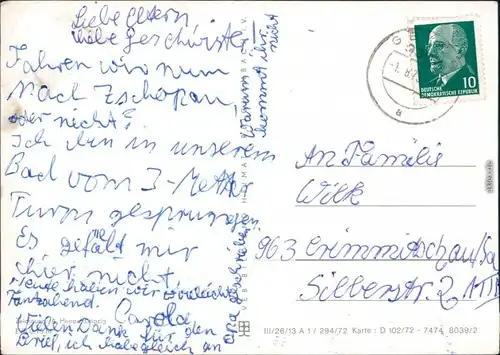 Liebe Eltern,
liebe Geschwister
Fahren wir nun
nach Zschopau,
oder nicht?
Ich bin in unserem
Bad vom 3-Meter
Turm gesprungen
Es gefält mir
hier nicht.
Heute haben wir
Tanzabend.
Carola
Vielen Dank für den
Brief, ich habe gleich an
Oma geschrieben
Warum
kommt ihr
nicht
VEB
DEUTSCHE
DEMOKRATISCHE REPUBLIK
10
An Familie
Wilk
963 Crimmitschau/Sa
Silberstr. 2
III/26/13 A 1 / 294/72 Karte: D 102/72 - 7474 8039/2